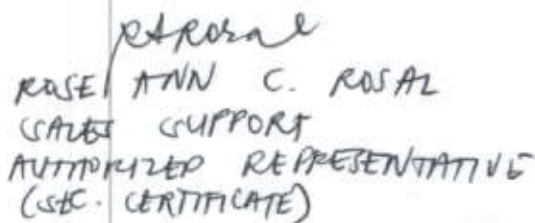 RARosal
ROSE ANN C. ROSAL
SALES SUPPORT
AUTHORIZED REPRESENTATIVE
(SEC. CERTIFICATE)